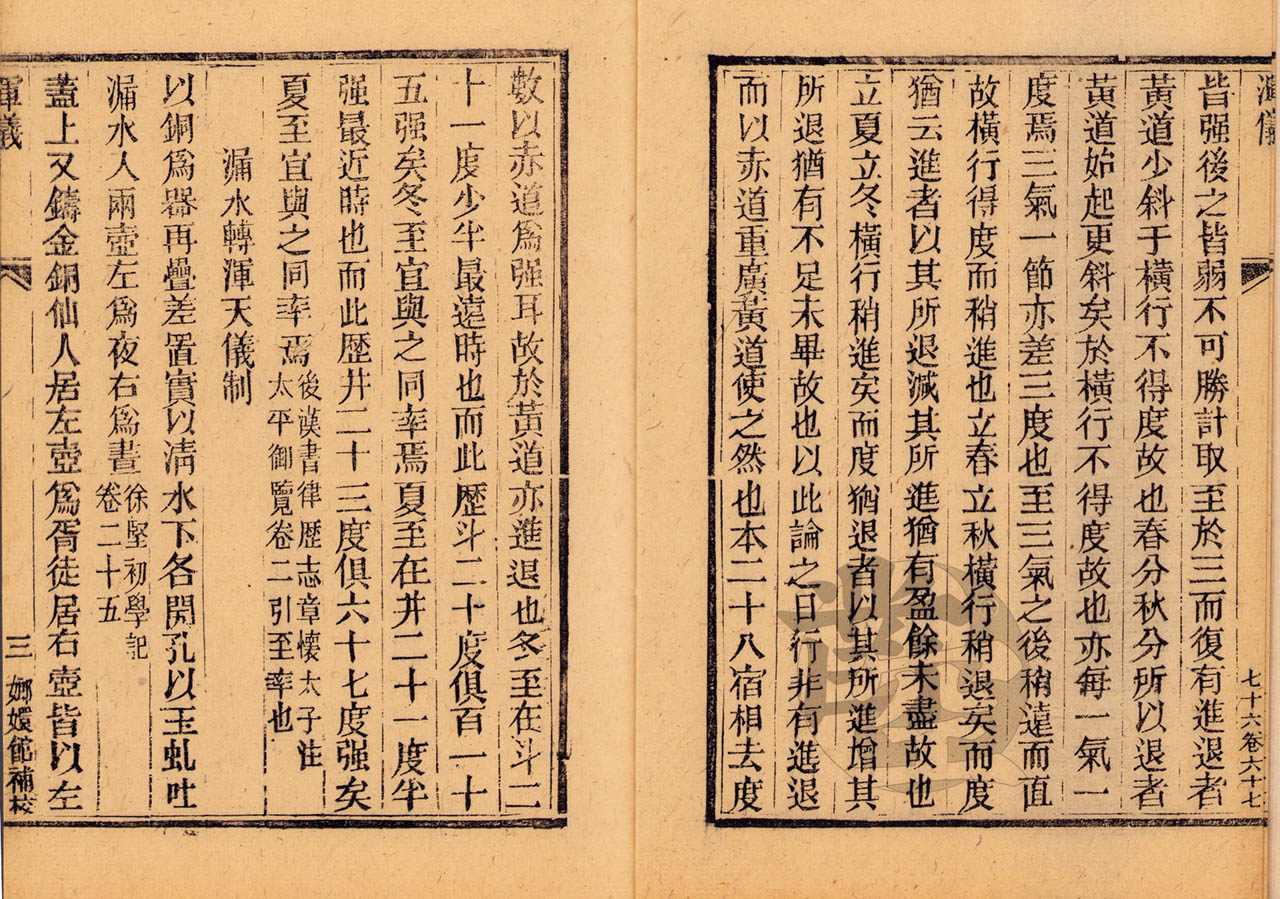 渾儀
七十六卷六十七
皆强後之皆弱不可勝計取至於三而復有進退者
黃道少斜于橫行不得度故也春分秋分所以退者
黃道始起更斜矣於橫行不得度故也亦每一氣一
度焉三氣一節亦差三度也至三氣之後稍遠而直
故橫行得度而稍進也立春立秋橫行稍退矣而度
猶云進者以其所退減其所進猶有盈餘未盡故也
立夏立冬橫行稍進矣而度猶退者以其所進增其
所退猶有不足未畢故也以此論之日行非有進退
而以赤道重廣黃道使之然也本二十八宿相去度
數以赤道爲强耳故於黃道亦進退也冬至在斗二
十一度少半最遠時也而此歷斗二十度俱百一十
五强矣冬至宜與之同率焉夏至在井二十一度半
强最近時也而此歷井二十三度俱六十七度强矣
夏至宜與之同率焉後漢書律歷志章懷太子注太平御覽卷二引至率也
漏水轉渾天儀制
以銅爲器再疊差置實以淸水下各開孔以玉虬吐
漏水人兩壺左爲夜右爲晝徐堅初學記卷二十五
蓋上又鑄金銅仙人居左壺爲胥徒居右壺皆以左
渾儀
三
嫏嬛館補校